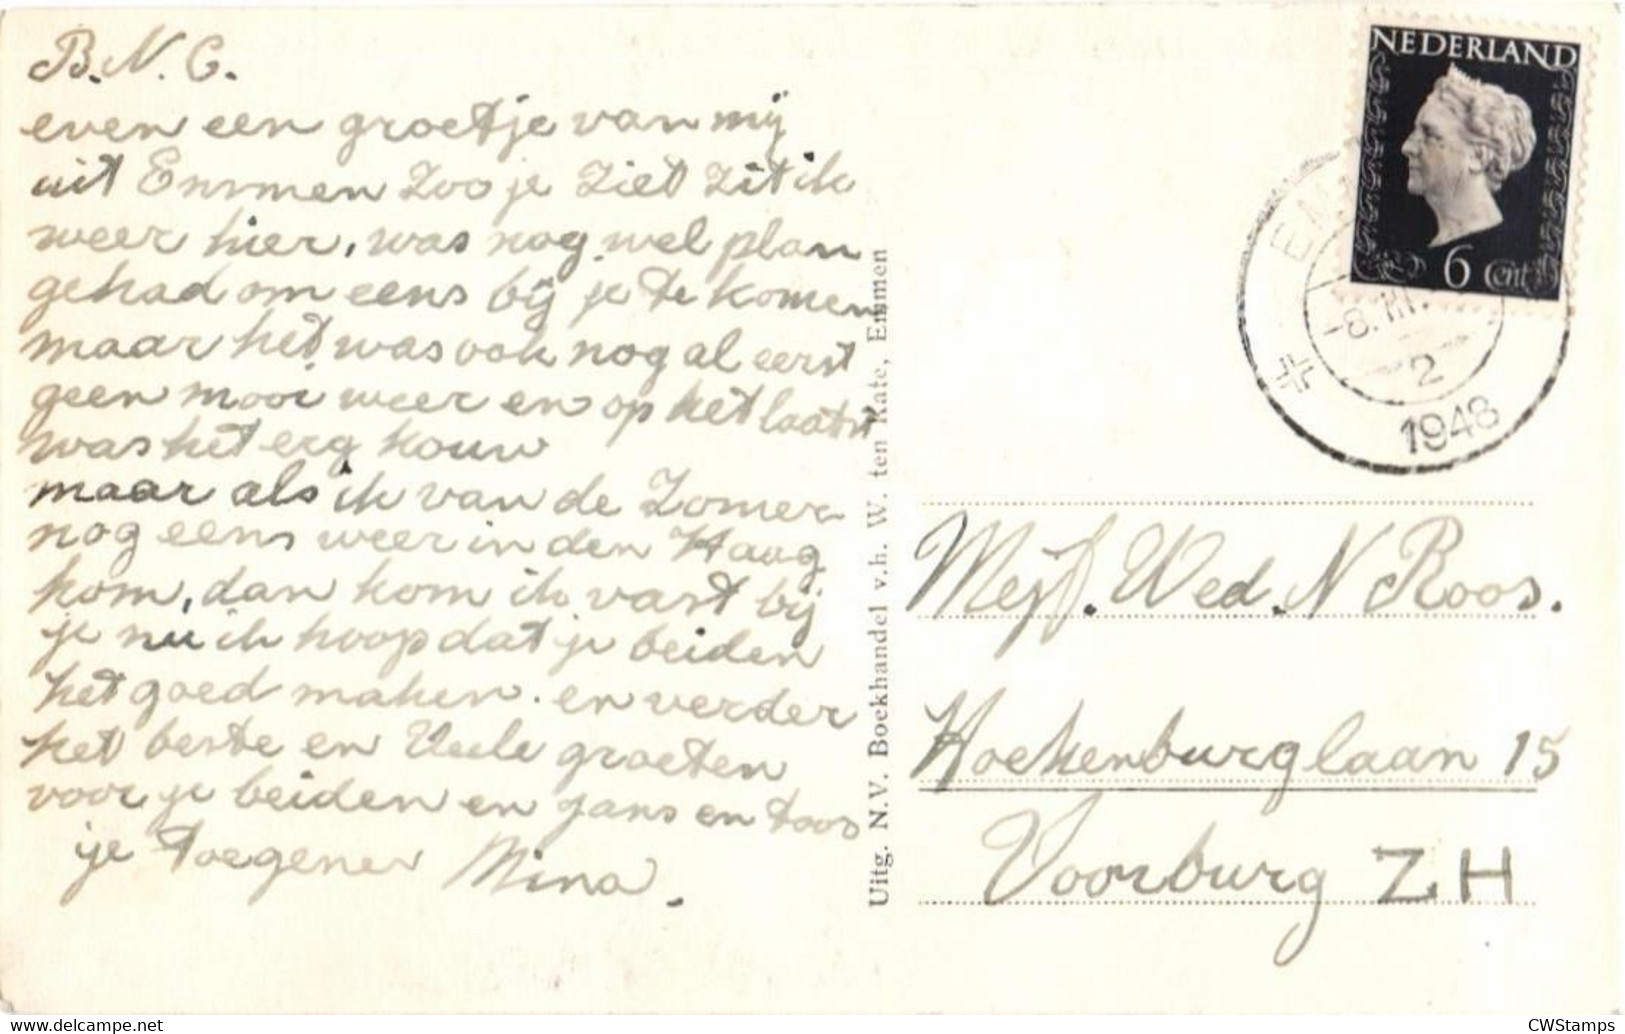 B.N.C.
even een groetje van mij
uit Emmen Zoo je Ziet zit ik
weer hier, was nog wel plan
gehad om eens bij je te komen
maar het was ook nog al eerst
geen mooi weer en op het laatst
was het erg kouw
maar als ik van de Zomer
nog eens weer in den Haag
kom, dan kom ik vast bij
je nu ik hoop dat je beiden
het goed maken. en verder
het beste en Veele groeten
voor je beiden en Jans en toos
je toegenen Mina.
Uitg. N.V. Boekhandel v.h. W. ten Kate, Emmen
NEDERLAND
6 Cent
-8.III.
2
1948
Mejf. Wed. N Roos.
Hoekenburglaan 15
Voorburg ZH
CWStamps